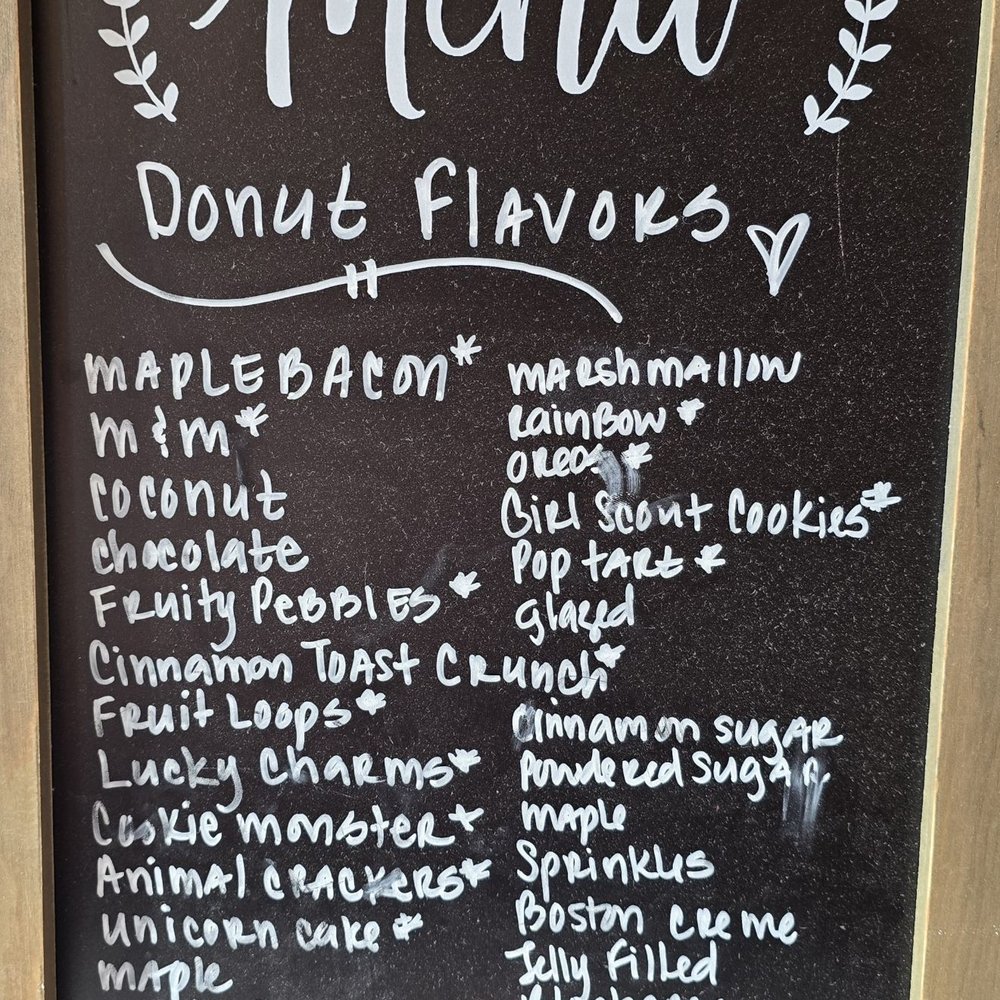 Menu
Donut Flavors
MAPLE BACON*
M & M*
COCONUT
chocolate
Fruity PEBBLES*
Cinnamon TOAST CRunch*
Fruit Loops*
Lucky Charms*
Cookie monster*
Animal CRACKERS*
Unicorn cake*
mAple
MARshmallow
RainBow*
OREOS*
Girl Scout Cookies*
Pop TART*
glazed
Cinnamon SugAR
Powdered SugAR
mAple
Sprinkles
Boston Creme
Jelly Filled